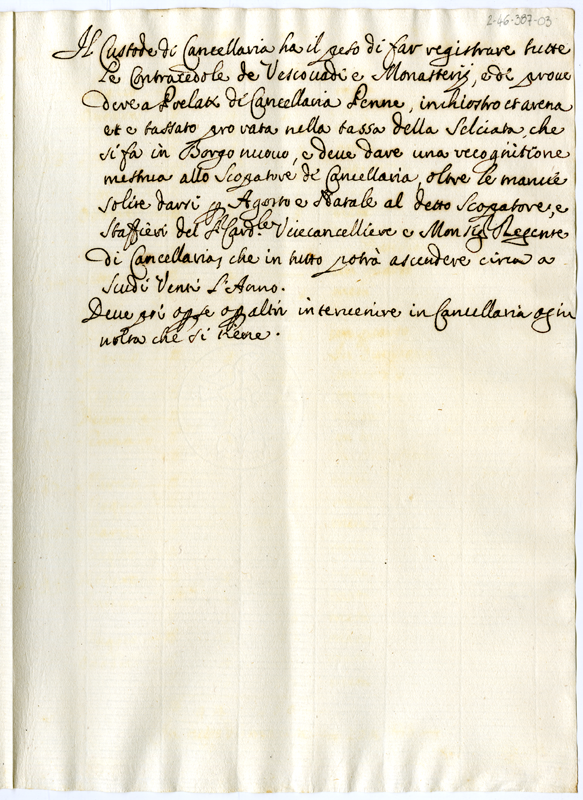 2-46-387-03
Il Custode di Cancellaria ha il peso di far registrare tutte
le Contracedole de Vescouadi e Monasterij, e di prove
deve a Prelati di Cancellaria Penne, inchiostro et arena
et e tassato pro rata nella tassa della Selciata, che
si fa in Borgo nuouo, e deue dare una recognitione
mestrua allo Scopatore di Cancellaria, oltre le mancie
solite darsi p Agosto e Natale al detto Scopatore, e
Staffieri del Sr. Card.le Vicecancelliere e Monsig Regente
di Cancellaria, che in tutto potrà ascendere circa a
Scudi Venti l'Anno.
Deue poi o altri intervenire in Cancellaria ogni
uolta che si tiene.